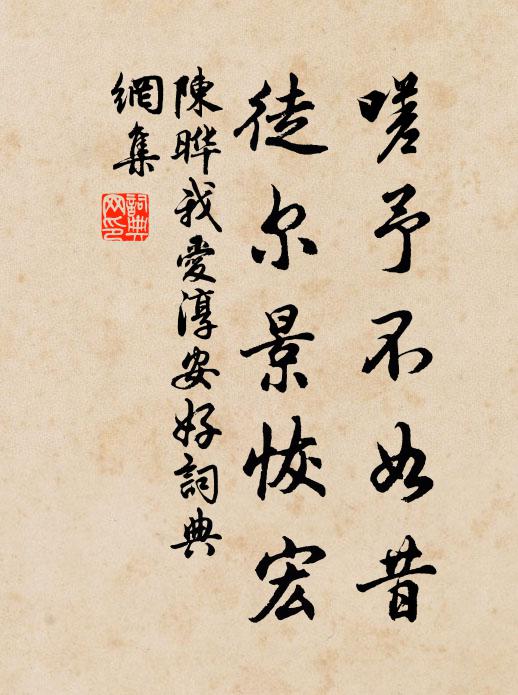 嗟予不如昔
徒尔景恢宏
陳晔我愛淳安好詞典
網集
詞典
网印